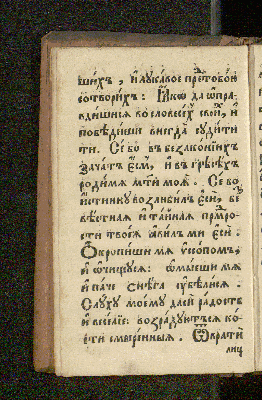 шихъ , и҆ лꙋкавое пре́ тобою
сотворихъ : Ꙗ҆́кѡ да ѡ҆пра
вдишисѧ во словесѣ́х свои́, и҆
побѣдиши внегда̀ сꙋдити
ти . Се́ бо въ беззако́нїихъ
зача́тъ є҆́смь, и҆ въ грѣсѣ́хъ
роди́ мѧ мт҃и моѧ̀ . Се́ бо
и҆́стиннꙋ возлюби́лъ є҆сѝ, бе
звѣ́стнаѧ и҆ та́йнаѧ прмⷣро
сти твоеѧ̀ ꙗ҆ви́лъ ми є҆сѝ :
Ѡ҆кропи́ши мѧ ѵ҆ссо́помъ,
и҆ ѡ҆чи́щꙋсѧ : ѡ҆мы́еши мѧ
и҆ па́че снѣ́га ᲂубѣлю́сѧ .
Слꙋ́хꙋ моемꙋ̀ да́си ра́дость
и҆ весе́лїе: возра́дꙋютъсѧ ко
сти смире́нныѧ . Ѿвратѝ
лиц